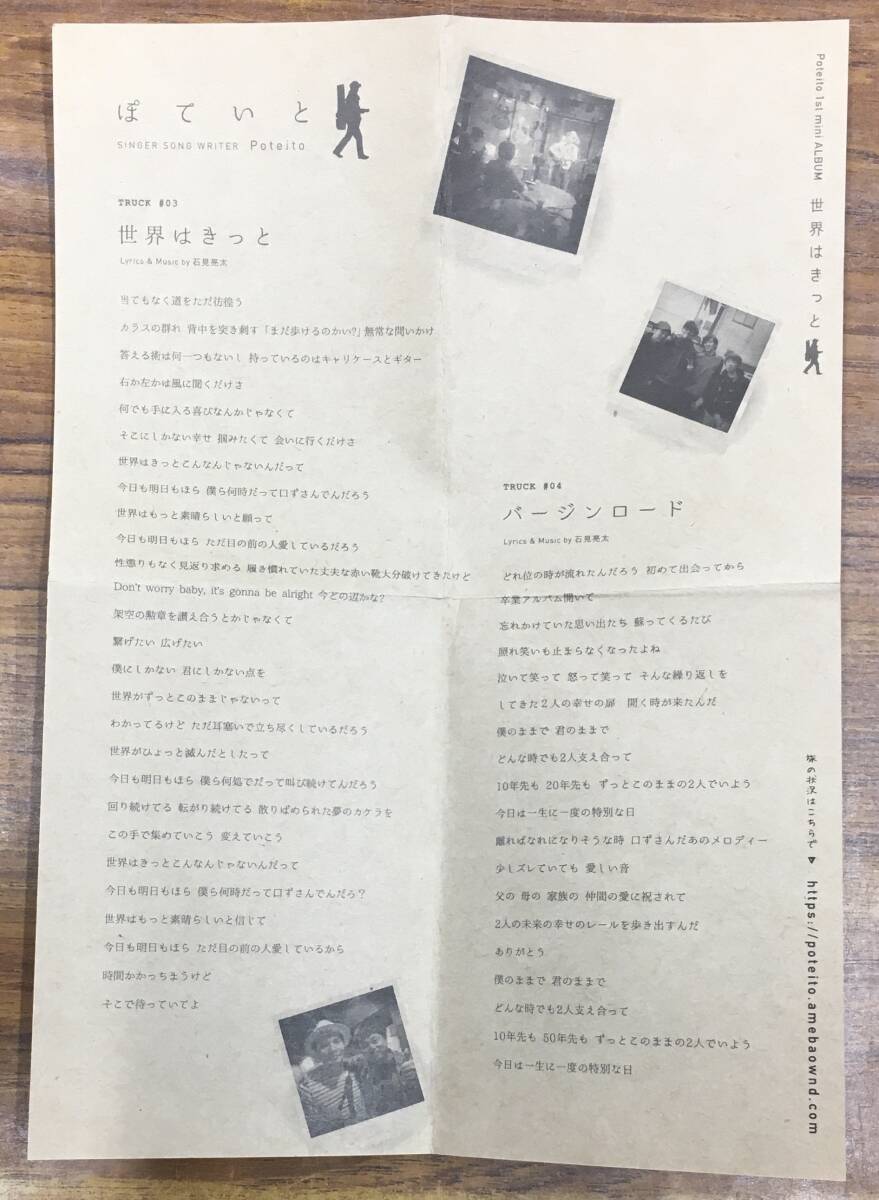 ぽていと
SINGER SONG WRITER Poteito
TRUCK #03
世界はきっと
Lyrics & Music by 石見亮太
当てもなく道をただ彷徨う
カラスの群れ 背中を突き刺す「まだ歩けるのかい?」無常な問いかけ
答える術は何一つもないし 持っているのはキャリケースとギター
右か左かは風に聞くだけさ
何でも手に入る喜びなんかじゃなくて
そこにしかない幸せ 掴みたくて 会いに行くだけさ
世界はきっとこんなんじゃないんだって
今日も明日もほら 僕ら何時だって口ずさんでんだろう
世界はもっと素晴らしいと願って
今日も明日もほら ただ目の前の人愛しているだろう
性懲りもなく見返り求める 履き慣れていた丈夫な赤い靴大分破けてきたけど
Don't worry baby, it's gonna be alright 今どの辺かな?
架空の勲章を讃え合うとかじゃなくて
繋げたい 広げたい
僕にしかない 君にしかない点を
世界がずっとこのままじゃないって
わかってるけど ただ耳塞いで立ち尽くしているだろう
世界がひょっと滅んだとしたって
今日も明日もほら 僕ら何処でだって叫び続けてんだろう
回り続けてる 転がり続けてる 散りばめられた夢のカケラを
この手で集めていこう 変えていこう
世界はきっとこんなんじゃないんだって
今日も明日もほら 僕ら何時だって口ずさんでんだろ?
世界はもっと素晴らしいと信じて
今日も明日もほら ただ目の前の人愛しているから
時間かかっちまうけど
そこで待っていてよ
TRUCK #04
バージンロード
Lyrics & Music by 石見亮太
どれ位の時が流れたんだろう 初めて出会ってから
卒業アルバム開いて
忘れかけていた思い出たち 蘇ってくるたび
照れ笑いも止まらなくなったよね
泣いて笑って 怒って笑って そんな繰り返しを
してきた2人の幸せの扉 開く時が来たんだ
僕のままで 君のままで
どんな時でも2人支え合って
10年先も 20年先も ずっとこのままの2人でいよう
今日は一生に一度の特別な日
離ればなれになりそうな時 口ずさんだあのメロディー
少しズレていても 愛しい音
父の 母の 家族の 仲間の愛に祝されて
2人の未来の幸せのレールを歩き出すんだ
ありがとう
僕のままで 君のままで
どんな時でも2人支え合って
10年先も 50年先も ずっとこのままの2人でいよう
今日は一生に一度の特別な日
Poteito 1st mini ALBUM 世界はきっと
旅の状況はこちらで ▼ https://poteito.amebaownd.com